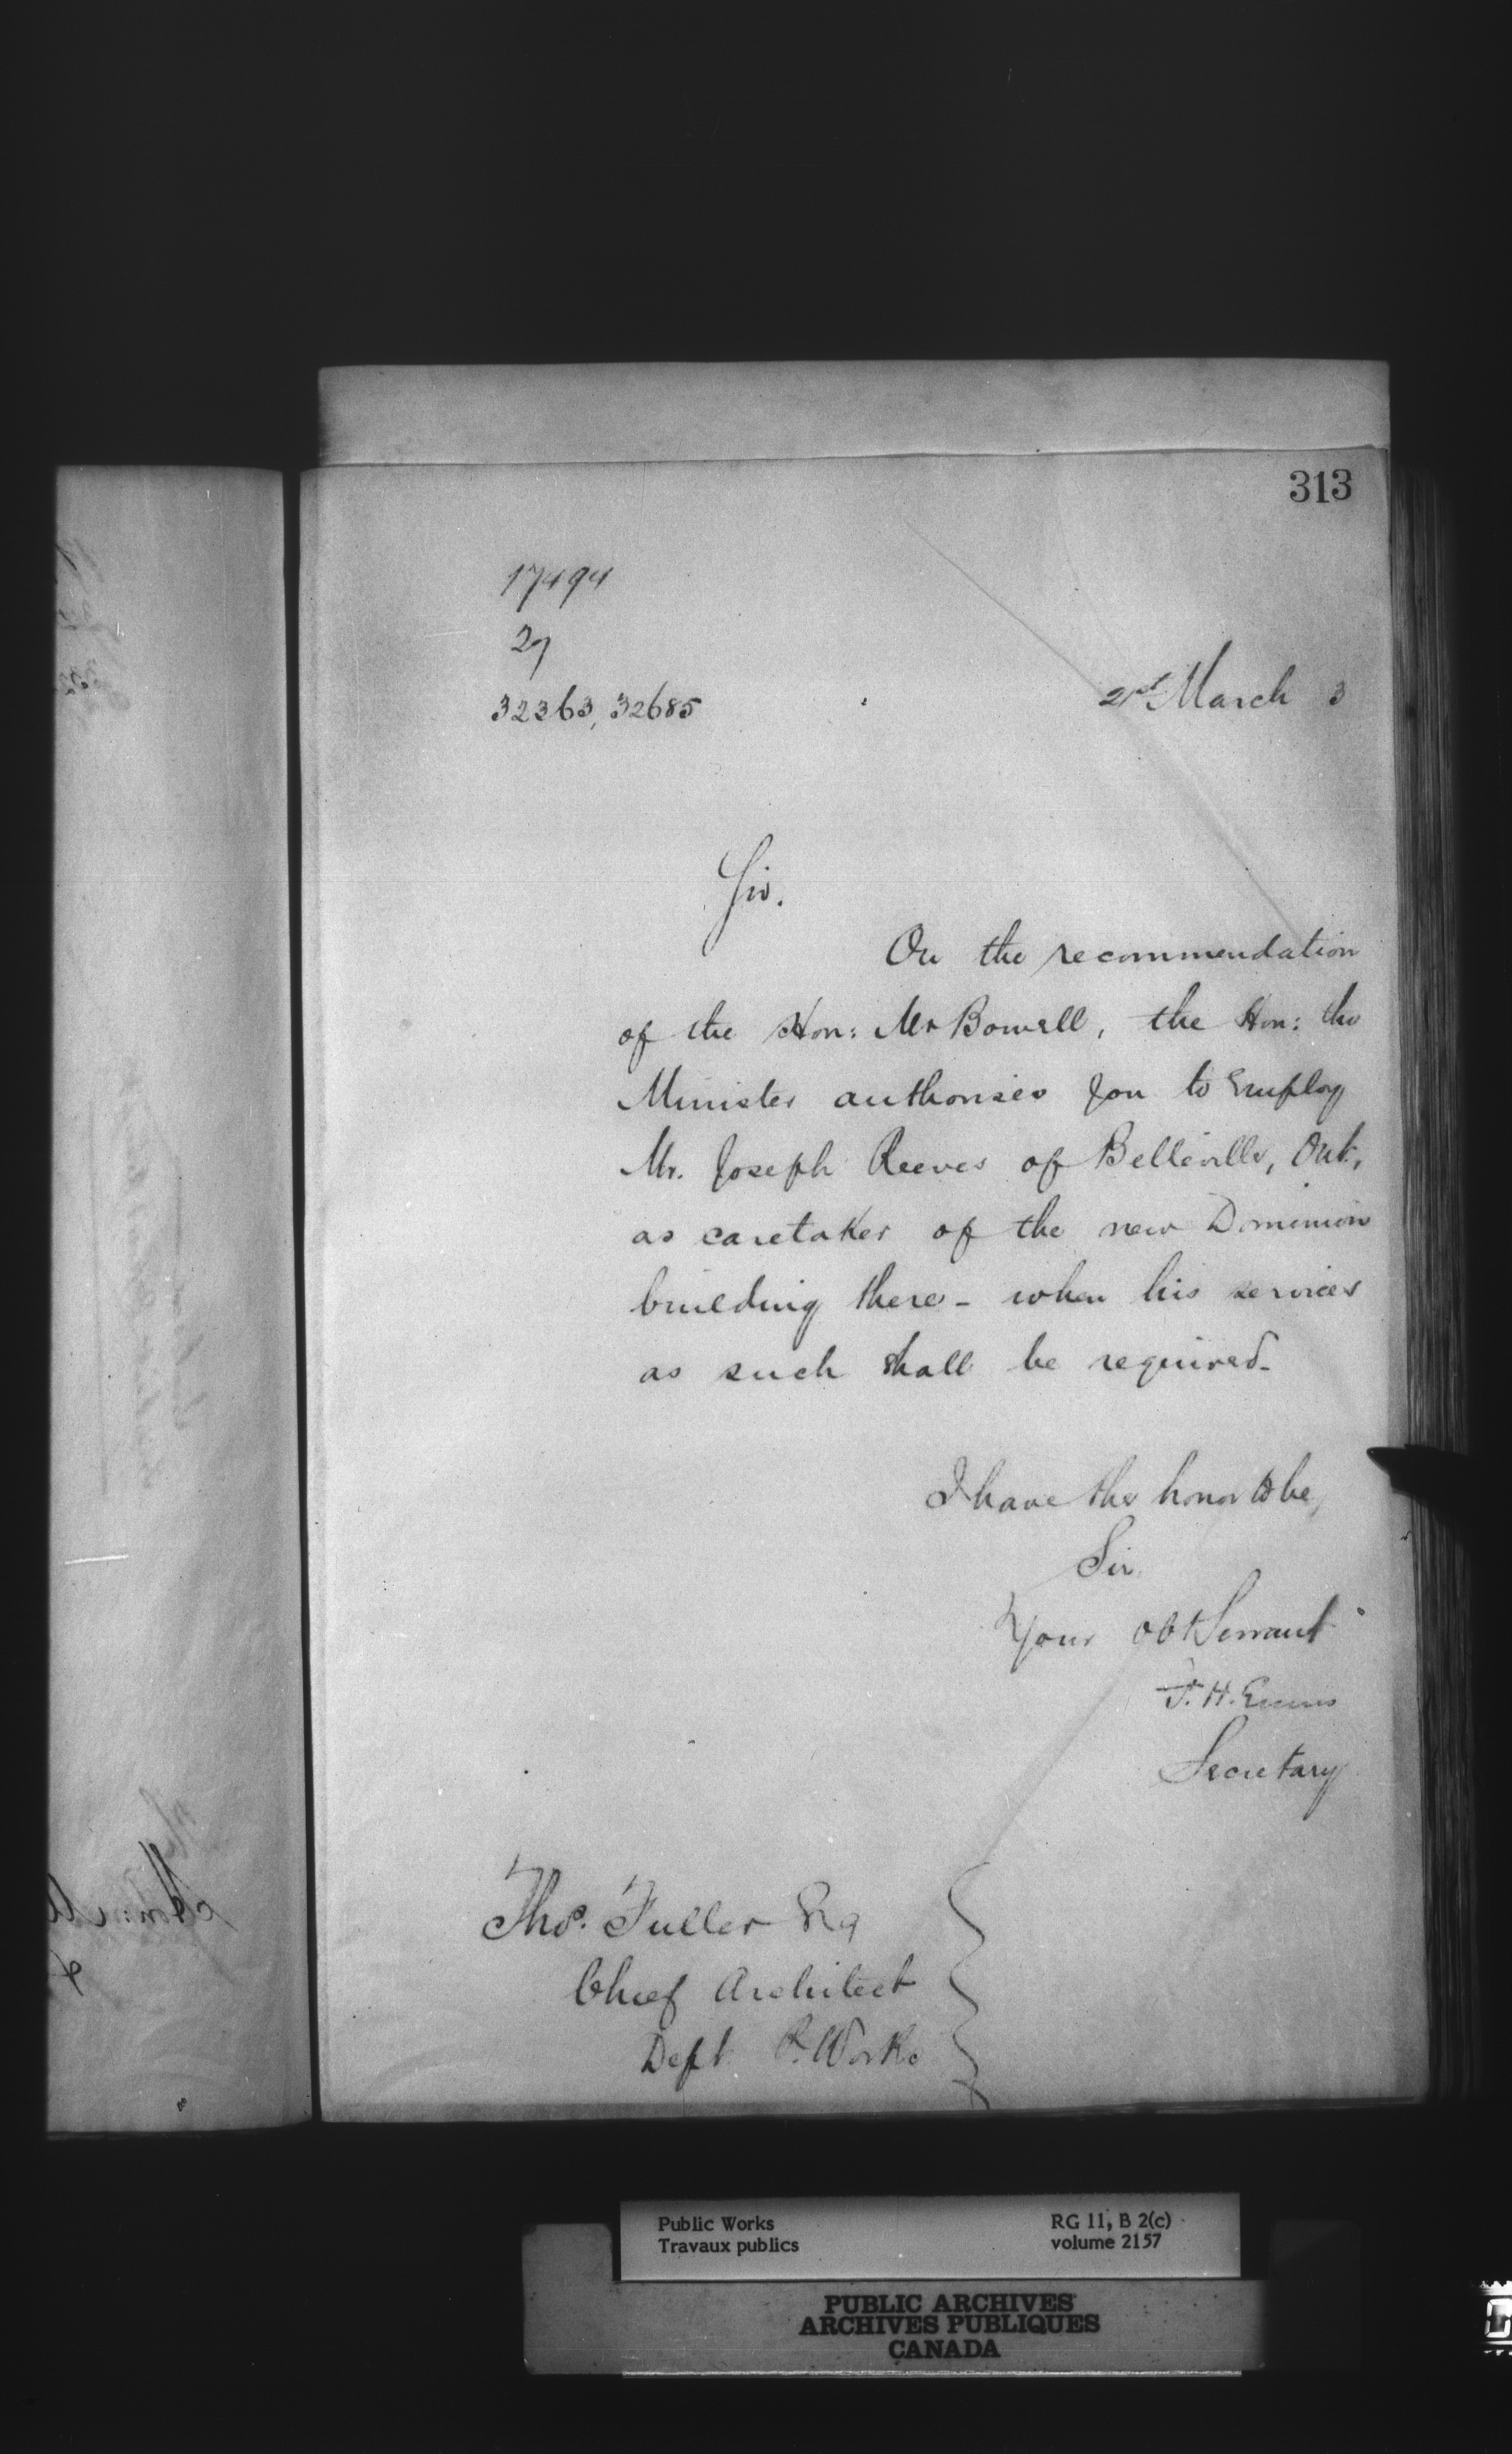 313
17494
27
32363, 32685
21st March 3
Sir.
On the recommendation
of the Hon: Mr Bowell, the Hon: the
Minister authorises you to employ
Mr. Joseph Reeves of Belleville, Ont,
as caretaker of the new Dominion
building there - when his services
as such shall be required -
I have the honor to be,
Sir
Your obt Servant
F. H. Ennis
Secretary
Thos. Fuller Esq
Chief Architect
Dept P. Works
Public Works
Travaux publics
RG 11, B 2(c)
volume 2157
PUBLIC ARCHIVES
ARCHIVES PUBLIQUES
CANADA